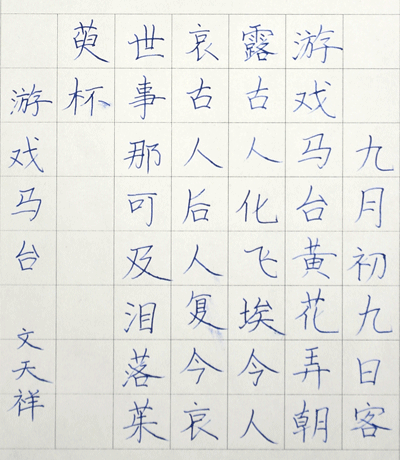 九月初九日客
游戏马台黄花弄朝
露古人化飞埃今人
哀古人后人复今哀
世事那可及泪落茱
萸杯
游戏马台 文天祥